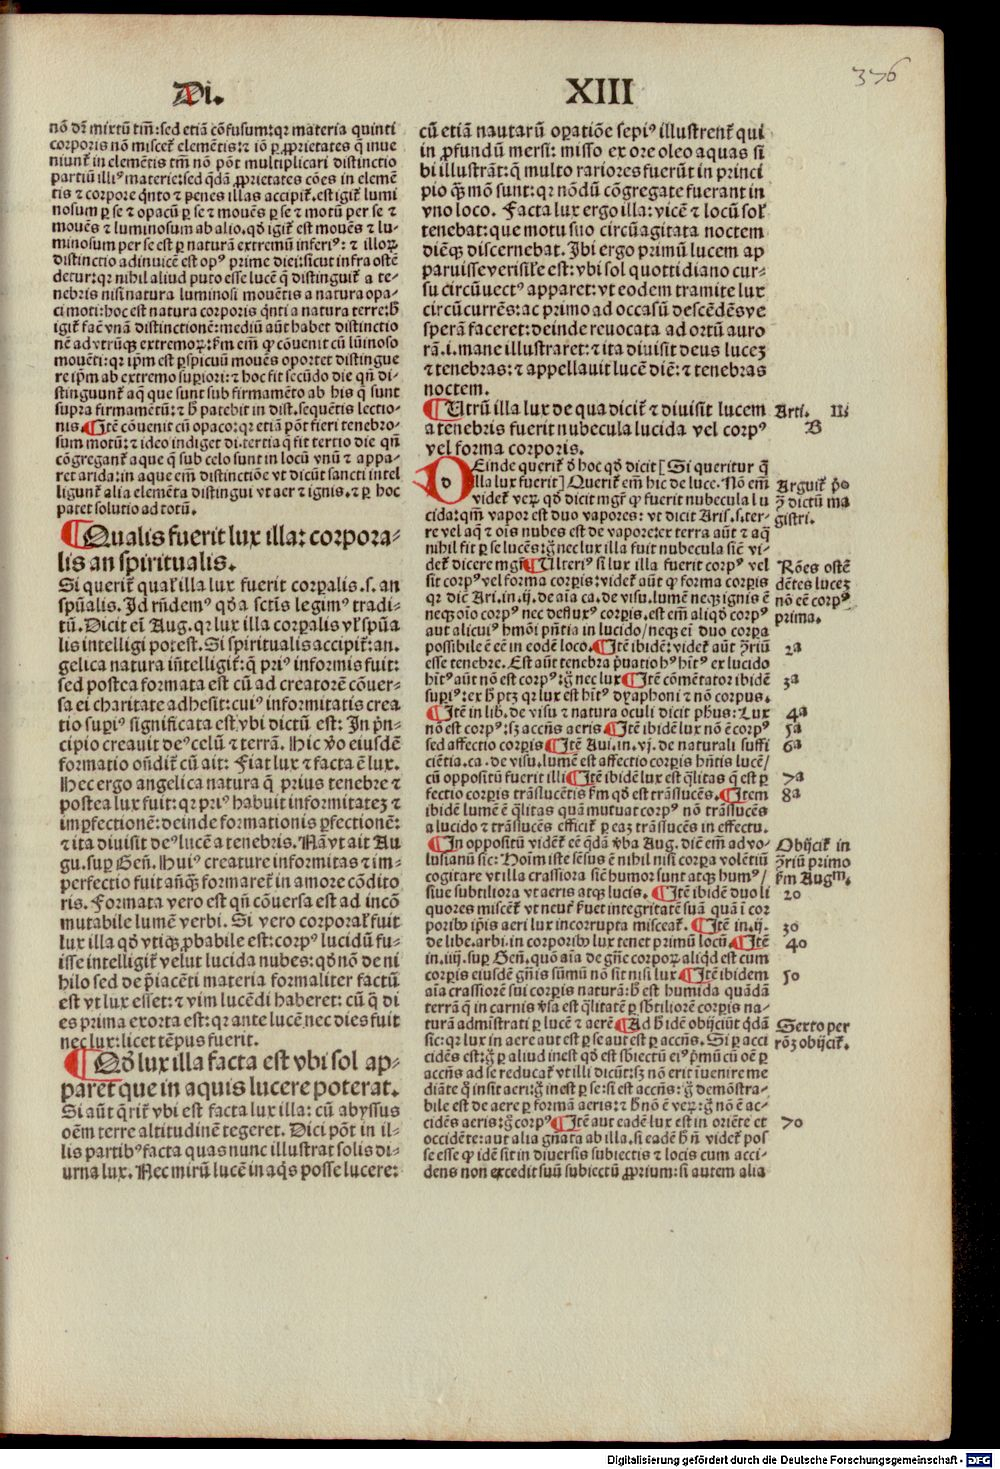 Di.
XIII
376
nō dr̄ mixtū tm̄: sed etiā cōfusum: qꝛ materia quinti
corporis nō misceť elemētis: ⁊ iō ꝑ ꝓprietates q̄ inue
niunť in elemētis tm̄ nō pōt multiplicari distinctio
partiū illiꝰ materie: sed q̄dā ꝓprietates cōes in elemē
tis ⁊ corpore q̄nto ⁊ penes illas accipiť. est igiť lumi
nosum ꝑ se ⁊ opacū ꝑ se ⁊ mouēs ꝑ se ⁊ motū per se ⁊
mouēs ⁊ luminosum ab alio. qđ igiť est mouēs ⁊ lu-
minosum per se est ꝑ naturā extremū inferiꝰ: ⁊ illoꝝ
distinctio adinuicē est opꝰ prime diei: sicut infra ostē
detur: qꝛ nihil aliud puto esse lucē q̄ distinguiť a te-
nebris nisi natura luminosi mouētis a natura opa-
ci moti: hoc est natura corporis q̄nti a natura terre: h̄
igiť facē vnā distinctionē: mediū aūt habet distinctio
nē ad vtrūqꝫ extremoꝝ: ẜm em̄ ꝙ cōuenit cū lūinoso
mouēti: qꝛ ip̄m est ꝑspicuū mouēs oportet distingue
re ip̄m ab extremo suꝑiori: ⁊ hoc fit secūdo die qn̄ di-
stinguunť aq̄ que sunt sub firmamēto ab his q̄ sunt
supra firmamētū: ⁊ h̄ patebit in dist. sequētis lectio-
nis. ¶ Itē cōuenit cū opaco: qꝛ etiā pōt fieri tenebro-
sum motū: ⁊ ideo indiget di. tertia q̄ fit tertio die qn̄
cōgreganť aque q̄ sub celo sunt in locū vnū ⁊ appa-
ret arida: in aque em̄ distinctiōe vt dicūt sancti intel
ligunť alia elemēta distingui vt aer ⁊ ignis. ⁊ ꝑ hoc
patet solutio ad totū.
¶ Qualis fuerit lux illa: corpora-
lis an spiritualis.
Si queriť qual̓ illa lux fuerit corꝑalis. s. an
spūalis. Id rn̄demꝰ qđ a sctīs legimꝰ tradi-
tū. Dicit ei̅ Aug. qꝛ lux illa corꝑalis vl̓ spūa
lis intelligi potest. Si spiritualis accipiť: an.
gelica natura in̄telligiť: q̄ priꝰ informis fuit:
sed postea formata est cū ad creatorē cōuer-
sa ei charitate adhesit: cuiꝰ informitatis crea
tio suꝑiꝰ significata est vbi dictū est: In p̄n-
cipio creauit deꝰ celū ⁊ terrā. Hic v̓o eiusdē
formatio on̄diť cū ait: Fiat lux ⁊ facta ē lux.
Hec ergo angelica natura q̄ prius tenebre ⁊
postea lux fuit: qꝛ priꝰ habuit informitateꝫ ⁊
imꝑfectionē: deinde formationis ꝑfectionē:
⁊ ita diuisit deꝰ lucē a tenebris. Nā vt ait Au
gu. suꝑ Geñ. Huiꝰ creature informitas ⁊ im-
perfectio fuit an̄q̄ꝫ formareť in amore cōdito
ris. Formata vero est qn̄ cōuersa est ad incō
mutabile lumē verbi. Si vero corporal̓ fuit
lux illa qđ vtiqꝫ ꝓbabile est: corpꝰ lucidū fu-
isse intelligiť velut lucida nubes: qđ nō de ni
hilo sed de p̄iacēti materia formaliter factū
est vt lux esset: ⁊ vim lucēdi haberet: cū q̄ di
es prima exorta est: qꝛ ante lucē nec dies fuit
nec lux: licet tēpus fuerit.
¶ Qđ lux illa facta est vbi sol ap-
paret que in aquis lucere poterat.
Si aūt q̄riť vbi est facta lux illa: cū abyssus
oēm terre altitudinē tegeret. Dici pōt in il-
lis partibꝰ facta quas nunc illustrat solis di-
urna lux. Nec mirū lucē in aq̄s posse lucere:
cū etiā nautarū oꝑatiōe sepiꝰ illustrenť qui
in ꝓfundū mersi: misso ex ore oleo aquas si
bi illustrāt: q̄ multo rariores fuerūt in princi
pio q̄ꝫ mō sunt: qꝛ nōdū cōgregate fuerant in
vno loco. Facta lux ergo illa: vicē ⁊ locū sol̓
tenebat: que motu suo circūagitata noctem
diēqꝫ discernebat. Ibi ergo primū lucem ap
paruisse verisil̓e est: vbi sol quottidiano cur-
su circūuectꝰ apparet: vt eodem tramite lux
circūcurrēs: ac primo ad occasū descēdēs ve
sperā faceret: deinde reuocata ad ortū auro
rā. i. mane illustraret: ⁊ ita diuisit deus luceꝫ
⁊ tenebras: ⁊ appellauit lucē diē: ⁊ tenebras
noctem.
¶ Utrū illa lux de qua diciť ⁊ diuisit lucem
a tenebris fuerit nubecula lucida vel corpꝰ
vel forma corporis.
Arti. II.
B
Deinde queriť d̓ hoc qđ dicit [Si queritur q̄
illa lux fuerit] Queriť em̄ hic de luce. Nō em̄
videť veꝝ qđ dicit mgr̄ ꝙ fuerit nubecula lu
cida: qm̄ vapor est duo vapores: vt dicit Aris. s. ter-
re vel aq̄ ⁊ oīs nubes est de vapore: ex terra aūt ⁊ aq̄
nihil fit ꝑ se lucēs: ḡ nec lux illa fuit nubecula sicē vi-
deť dicere mgr̄. ¶ Ulteriꝰ si lux illa fuerit corpꝰ vel
sit corpꝰ vel forma corꝑis: videť aūt ꝙ forma corꝑis
qꝛ dic̄ Ari. in. ij. de aīa ca. de visu. lumē neqꝫ ignis ē
neqꝫ oīo corpꝰ nec defluxꝰ corꝑis. est em̄ aliqđ corpꝰ
aut alicuiꝰ hmōi p̄ntia in lucido/ neqꝫ ei̅ duo corꝑa
possibile ē eē in eodē loco. ¶ Itē ibidē: videť aūt ꝯ̄riū
esse tenebre. Est aūt tenebra p̄uatio hꝰ hītꝰ ex lucido
hītꝰ aūt nō est corpꝰ: ḡ nec lux ¶ Itē cōmētator ibidē
suꝑiꝰ: ex h̄ ptꝫ qꝛ lux est hītꝰ dyaphoni ⁊ nō corpus.
¶ Itē in lib. de visu ⁊ natura oculi dicit ph̄us: Lux
nō est corpꝰ: sꝫ accn̄s aeris ¶ Itē ibidē lux nō ē corpꝰ
sed affectio corꝑis ¶ Itē Aui. in. vj. de naturali suffi
ciētia. ca. de visu. lumē est affectio corꝑis hn̄tis lucē/
cū oppositū fuerit illi ¶ Itē ibidē lux est q̄litas q̄ est ꝑ
fectio corꝑis trāslucētis ẜm qđ est trāslucēs. ¶ Item
ibidē lumē ē q̄litas quā mutuat corpꝰ nō trāslucēs
a lucido ⁊ trāslucēs efficiť ꝑ eaꝫ trāslucēs in effectu.
¶ In oppositū videť eē q̄dā v̓ba Aug. diē em̄ ad vo-
lusianū sic: Hoīm iste sēsus ē nihil nisi corꝑa volētiū
cogitare vt illa crassiora siē humor sunt atqꝫ humꝰ/
siue subtiliora vt aeris atqꝫ lucis. ¶ Itē ibidē duo li
quores misceť vt neuť ẜuet integritatē suā quā ī cor
poribꝰ ip̄is aeri lux incorrupta misceať. ¶ Itē in. ij.
de libe. arbi. in corporibꝰ lux tenet primū locū. ¶ Itē
in. iiij. suꝑ Geñ. quō aīa de gn̄e corpoꝝ aliqd est cum
corꝑis eiusdē gn̄is sūmū nō sit nisi lux ¶ Itē ibidem
aīa crassiorē sui corꝑis naturā: h̄ est humidā quādā
terrā q̄ in carnis v̓sa est q̄litatē ꝑ sb̓tiliorē corꝑis na-
turā admīstrati ꝑ lucē ⁊ aerē ¶ Ad h̄ idē obijciūt q̄dā
sic: qꝛ lux in aere aut est ꝑ se aut est ꝑ accn̄s. Si ꝑ acci
cidēs est: ḡ ꝑ aliud inest qđ est sb̓iectū eiꝰ p̄mū cū oē ꝑ
accn̄s ad se reducať vt illi dicūt: sꝫ nō erit īuenire me
diāte q̄ insit aeri: ḡ inest ꝑ se: si est accn̄s: ḡ demōstra-
bile est de aere ꝑ formā aeris: ⁊ h̄ nō ē veꝝ: ḡ nō ē ac-
cidēs aeris: ḡ corpꝰ ¶ Itē aut eadē lux est in oriēte et
occidēte: aut alia gn̄ata ab illa. si eadē h̄ n̄ videť pos
se esse ꝙ idē sit in diuersis subiectis ⁊ locis cum acci-
dens non excedit suū subiectū ꝓprium: si autem alia
Arguiť p̊o
ꝯ̄ dictū ma
gistri.
Rōes ostē
dētes luceꝫ
nō eē corpꝰ
prima.
2ª
3ª
4ª
5ª
6ª
7ª
8ª
Obijciť in
ꝯ̄riū primo
ẜm Augᵐ.
2o
3o
4o
5o
Sexto per
rōꝫ obijciť.
7o
Digitalisierung gefördert durch die Deutsche Forschungsgemeinschaft - DFG